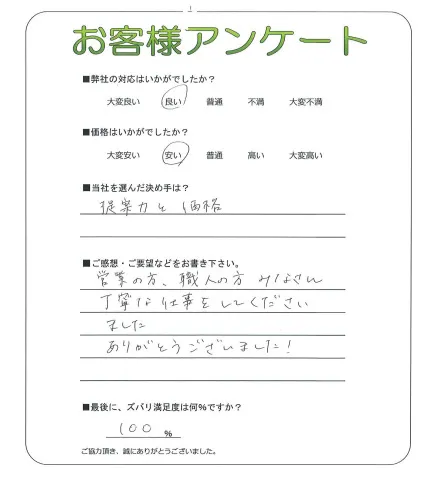 お客様アンケート
■弊社の対応はいかがでしたか？
大変良い 良い 普通 不満 大変不満
■価格はいかがでしたか？
大変安い 安い 普通 高い 大変高い
■当社を選んだ決め手は？
提案力と価格
■ご感想・ご要望などをお書き下さい。
営業の方、職人の方 みなさん
丁寧な仕事をしてください
ました
ありがとうございました！
■最後に、ズバリ満足度は何％ですか？
100 ％
ご協力頂き、誠にありがとうございました。